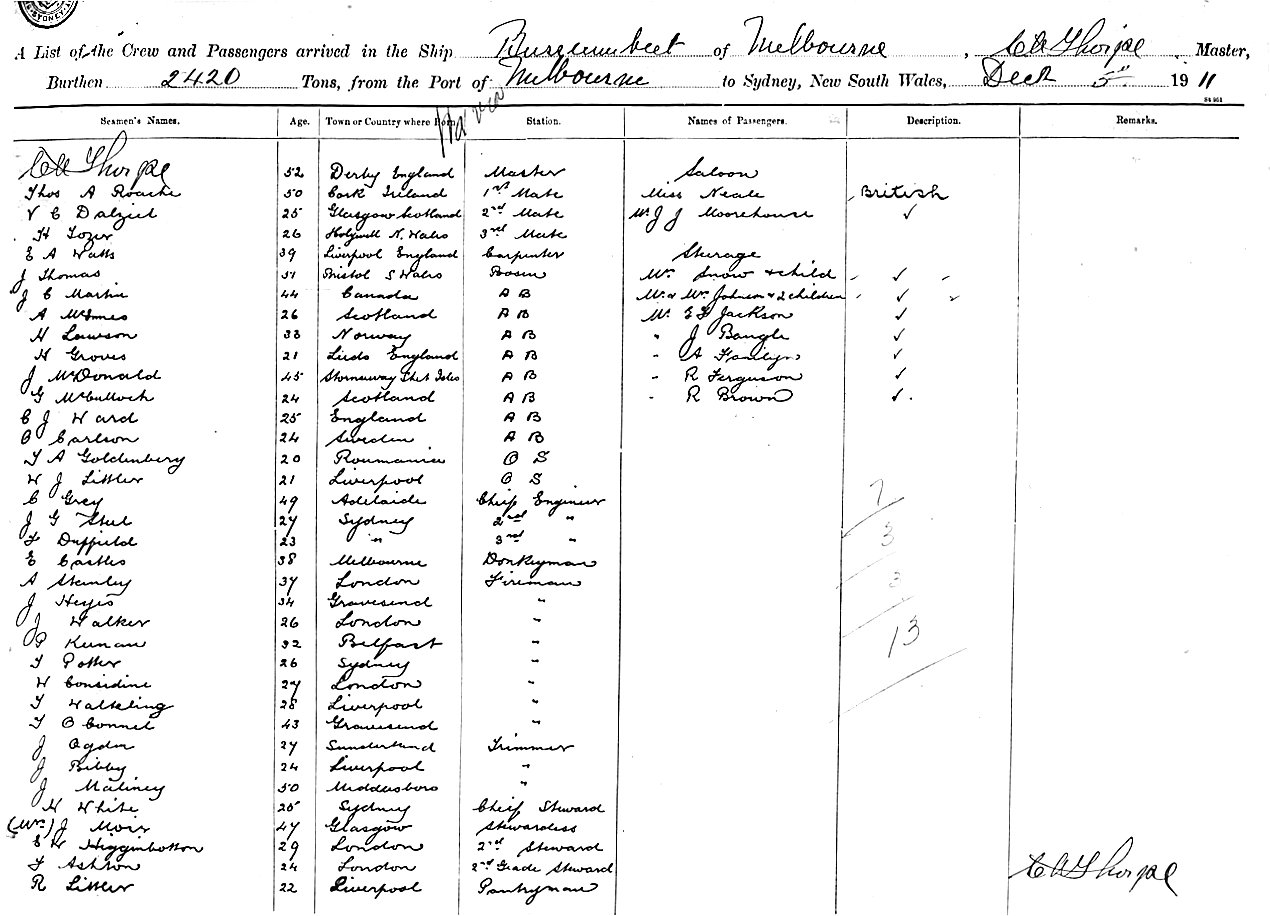 SYDNEY
A List of the Crew and Passengers arrived in the Ship Burrumbeet of Melbourne, C A Thorpe Master,
Burthen 2420 Tons, from the Port of Melbourne to Sydney, New South Wales, Decr 5th 1911
Seamen's Names. Age. Town or Country where Born. Station. Names of Passengers. Description. Remarks.
C A Thorpe 52 Derby England Master Saloon
Thos A Roache 50 Cork Ireland 1st Mate Miss Neale British
V C Dalziel 25 Glasgow Scotland 2nd Mate Mr J J Moorehouse ✓
H Tozer 26 Holywell N. Wales 3rd Mate
E A Watts 39 Liverpool England Carpenter Steerage
J Thomas 51 Bristol S Wales Bosun Mrs Snow & child " ✓ "
J C Martin 44 Canada A B Mr & Mrs Johnson & 2 children " ✓ "
A McInnes 26 Scotland A B Mr E F Jackson ✓
H Lawson 33 Norway A B " J Bangle ✓
H Groves 21 Leeds England A B " A ✓
J McDonald 45 Stornaway Shet Isles A B " R Ferguson ✓
G McCulloch 24 Scotland A B " R Brown ✓.
C J Ward 25 England A B
O Carlson 24 Sweden A B
T A Goldenberg 20 Roumania O S
W J Littler 21 Liverpool O S
C Grey 49 Adelaide Chief Engineer 7
J G Steel 27 Sydney 2nd "
F Duffield 23 " 3rd " 3
E Castles 38 Melbourne Donkeyman
A Stanley 37 London Fireman 3
J Heyes 34 Gravesend "
J Walker 26 London "
P Keenan 32 Belfast " 13
T Potter 26 Sydney "
W Considine 27 London "
T Walkling 28 Liverpool "
T O Connel 43 Gravesend "
J Ogden 27 Sunderland Trimmer
J Bibby 24 Liverpool "
J Maliney 50 Middesboro "
H White 25 Sydney Chief Steward
(Mrs) J Moir 47 Glasgow Stewardess
E W Higginbotton 29 London 2nd Steward
F Ashton 24 London 2nd Grade Steward C A Thorpe
R Littler 22 Liverpool Pantryman